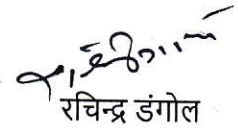 रचिन्द्र डंगोल